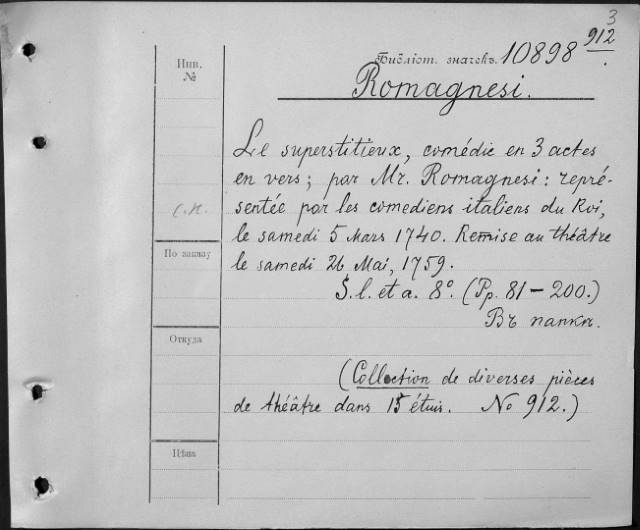 3
912
Инв. №
Библіот. значекъ. 10898
Romagnesi.
Le superstitieux, comédie en 3 actes
en vers; par Mr. Romagnesi: repré-
sentée par les comediens italiens du Roi,
le samedi 5 Mars 1740. Remise au théâtre
le samedi 26 Mai, 1759.
S. l. et a. 8°. (Pp. 81 – 200.)
Въ папкѣ.
По заказу
Откуда
(Collection de diverses pièces
de théâtre dans 15 étuis. No 912.)
Цѣна